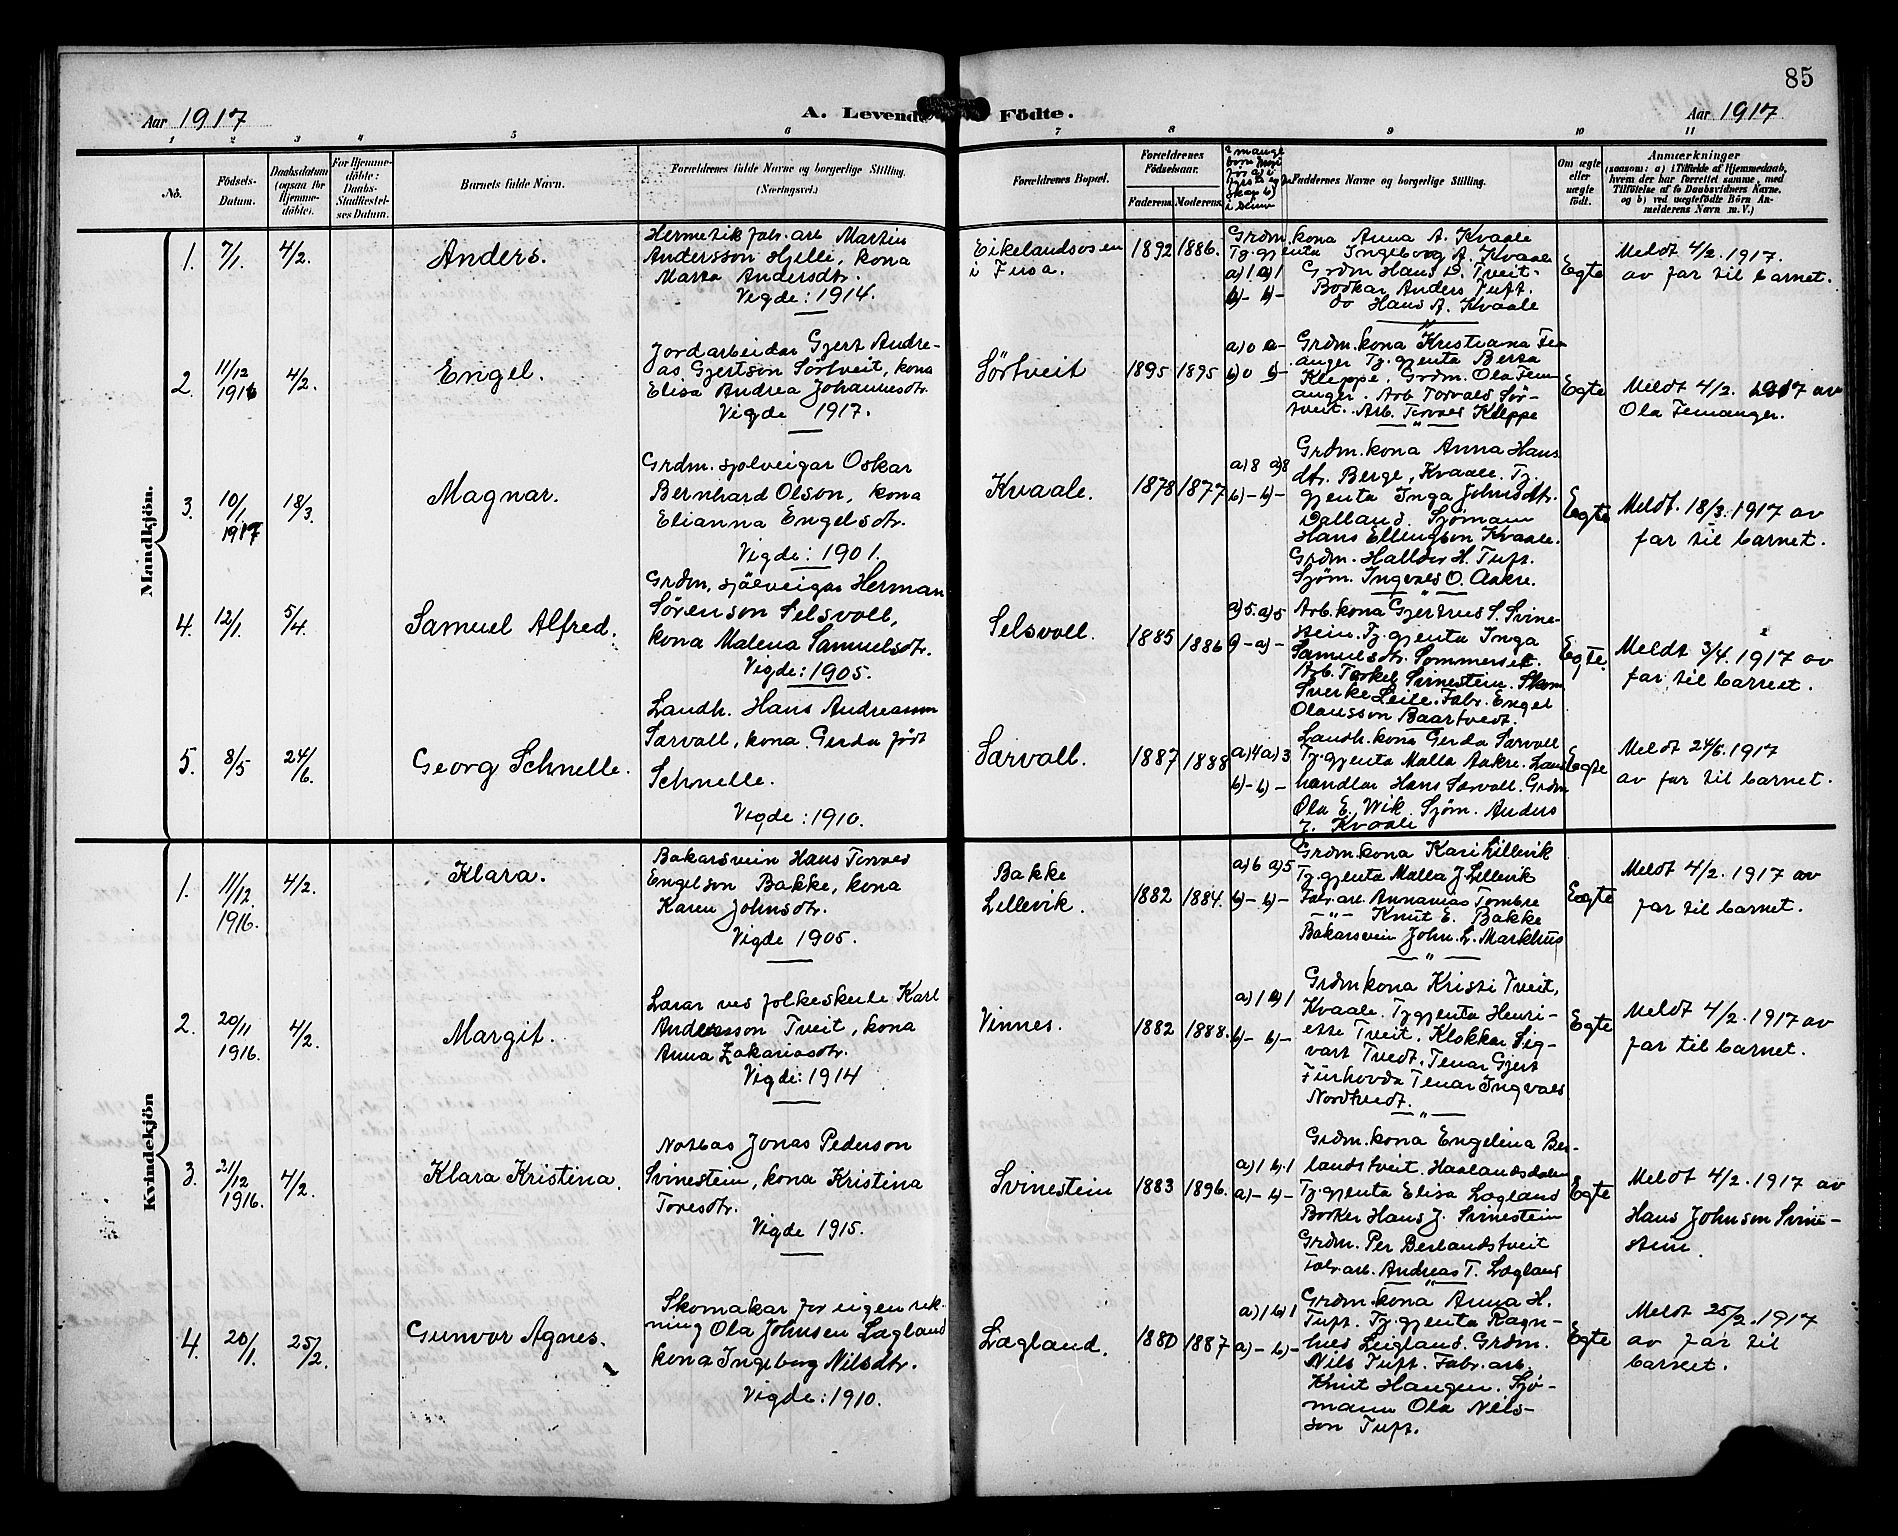 85
Aar 1917
A. Levende Fødte.
Aar 1917
1 2 3 4 5 6 7 8 9 10 11
No.
Födsels-
Datum.
Daabsdatum
(ogsaa for
Hjemme-
döbte).
For Hjemme-
döbte:
Daabs-
Stadfæstel-
ses Datum.
Barnets fulde Navn.
Forældrenes fulde Navne og borgerlige Stilling.
(Næringsvei.)
Forældrenes Bopæl.
Forældrenes
Födselsaar.
Faderens. Moderens.
Faddernes Navne og borgerlige Stilling.
Om ægte
eller
uægte
födt.
Anmærkninger
(saasom: a) i Tilfælde af Hjemmedaab,
hvem der har forrettet samme, med
Tilföielse af to Daabsvidners Navne,
og b) ved uægtefödte Börn An-
melderens Navn m. V.)
Mandkjön.
1. 7/1. 4/2.
Anders.
Hermetik fabr. arb Martin
Andersson Hjelle, kona
Marta Andersdtr.
Vigde: 1914.
Eikelandsosen
i Fusa.
1892 1886.
a) 1 a) 1
b) - b) -
Grdm. kona Anna A. Kvaale
Tj. gjenta Ingeborg A. Kvaale
Grdm Hans D. Tveit-
Bødkar Anders Tuft.
do Hans A. Kvaale
Egte
Meldt 4/2. 1917.
av far til barnet.
2. 11/12 1916 4/2.
Engel.
Jordarbeidar Gjert Andre-
as Gjertson Sörtveit, kona
Elisa Andrea Johannesdtr.
Vigde 1917.
Sørtveit
1895 1895
a) 0 a-
b) 0 b) -
Grdm. kona Kristiana Fem
anger Tj. gjenta Berta
Kleppe, Grdm. Ola Fem
anger. Arb Torvald Sør-
tveit. Arb. Torvald Kleppe
Egte
Meldt 4/2. 1917 av
Ola Femanger.
3. 10/1. 1917 18/3.
Magnar.
Grdm. sjolveigar Oskar
Bernhard Olson, kona
Elianna Engelsdtr.
Vigde: 1901.
Kvaale.
1878 1877
a) 8 a) 8
b) - b) -
Grdm. kona Anna Hans
dtr. Berge, Kvaale. Tj.
gjenta Inga Johnsdtr.
Dalland. Sjömann
Hans Ellingson Kvaale.
Grdm. Halldor H. Tuft.
Sjøm. Ingvald O. Aakre.
Egte
Meldt. 18/3. 1917 av
far til barnet.
4. 12/1. 5/4.
Samuel Alfred.
Grdm. sjölveigar Herman
Sörenson Selsvoll,
kona Malena Samuelsdtr.
Vigde: 1905.
Selsvoll.
1885 1886
a) 5. a) 5
- a) -
Arb. kona Gjertrud S. Svine-
stein. Tj. gjenta Inga
Samuelsdtr. Sommerset.
Arb. Torkel Svinestein. Skom
Sverke Leite. Fabr. Engel
Olausson Baartvedt.
Egte.
Meldt 3/4. 1917 av
far til barnet.
5. 8/5 24/6.
Georg Schnelle.
Landh. Hans Andreasson
Sarvoll, kona Gerda født
Schnelle.
Vigde: 1910.
Sarvoll.
1887 1888
a) 4 a) 3
b) - b) -
Landh. kona Gerda Sarvoll
Tj. gjenta Malla Aakre. Land
handlar Hans Sarvoll. Grdm
Ola E. Wik. Sjöm. Anders
J. Kvaale
Egte
Meldt 24/6. 1917
av far til barnet.
Kvindekjön
1. 11/12. 1916. 4/2.
Klara.
Bakarsvein Hans Torvald
Engelson Bakke, kona
Karen Johnsdtr.
Vigde 1905.
Bakke
Lillevik.
1882 1884.
a) 6 a) 5
b) - b) -
Grdm. kona Kari Lillevik
Tj. gjenta Malla J. Lillevik
Fabr. arb. Annanias Tombre
- " - Knut E. Bakke
Bakarsvein John. L. Markhus
Egte
Meldt 4/2. 1917 av
far til barnet.
2. 20/11 1916. 4/2.
Margit.
Lærar ved folkeskule Karl
Andersson Tveit, kona
Anna Zakariasdtr.
Vigde: 1914
Vinnes.
1882 1888.
a) 1 a) 1
b) - b) -
Grdm kona Kristi Tveit,
Kvaale. Tj gjenta Henri-
ette Tveit. Klokkar Sig-
vart Tvedt. Tenar Gjert
Furhovda Tenar Ingvald
Nordtvedt.
Egte
Meldt 4/2. 1917 av
far til barnet.
3. 21/12 1916. 4/2.
Klara Kristina.
Notbas Jonas Pederson
Svinestein, kona Kristina
Toresdtr.
Vigde 1915.
Svinestein
1883 1896.
a) 1 b. 1
a) - b) -
Grdm. kona Engelina Ber-
landstveit. Haalandsdalen
Tj. gjenta Elisa Lægland
Børker Hans J. Svinestein
Grdm. Per Berlandstveit
Fabr. arb. Andreas T. Lægland
Egte
Meldt 4/2. 1917 av
Hans Johnson Svine-
stein.
4. 20/1. 25/2.
Gunvor Agnes.
Skomakar for eigen rek-
ning Ola Johnsen Lægland
kona Ingeborg Nilsdtr.
Vigde: 1910.
Lægland.
1880 1887
a) 1 b) 1
a) - b) -
Grdm. kona Anna H.
Tuft. Tj. gjenta Ragn-
hild Leigland. Grdm.
Nils Tuft. Fabr. arb.
Knut Haugen. Sjø-
mann Ola Nils-
son Tuft.
Egte
Meldt 25/2. 1917
av far til
barnet.